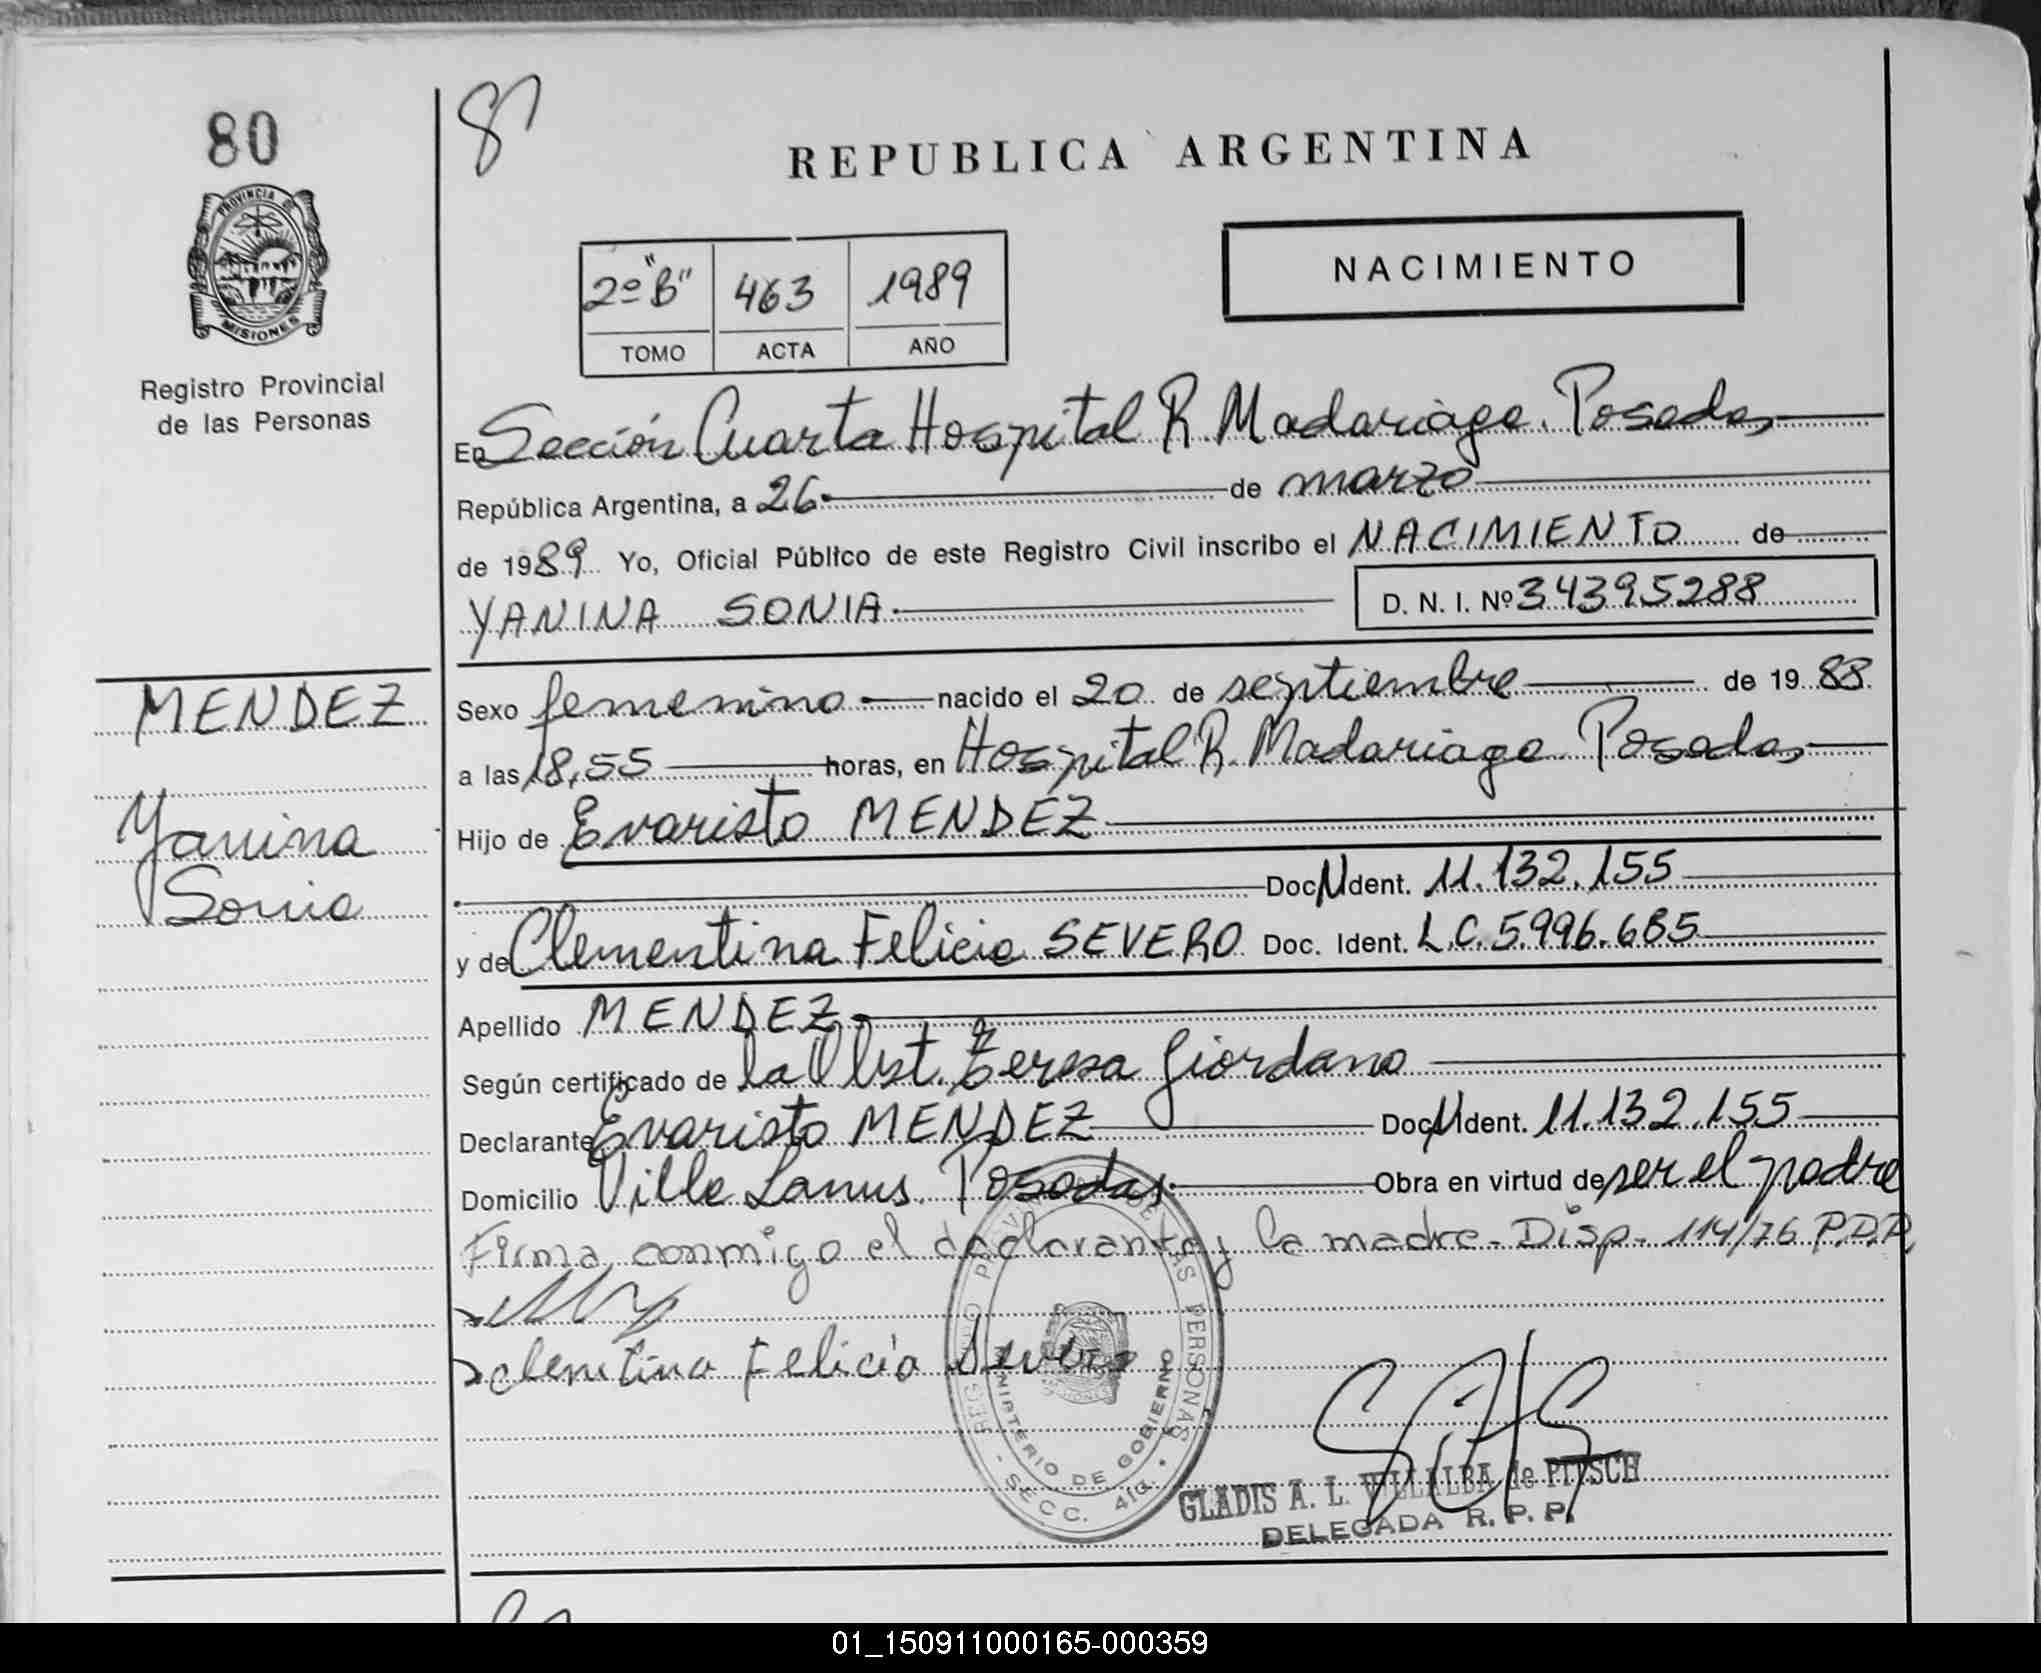 80
8
REPUBLICA ARGENTINA
PROVINCIA DE
MISIONES
Registro Provincial
de las Personas
2º "B" 463 1989
TOMO ACTA AÑO
NACIMIENTO
En Sección Cuarta Hospital R Madariaga. Posadas
República Argentina, a 26 de marzo
de 1989 Yo, Oficial Público de este Registro Civil inscribo el NACIMIENTO de
YANINA SONIA D. N. I. Nº 34395288
MENDEZ
Yanina
Sonia
Sexo femenino nacido el 20 de septiembre de 19 88
a las 18,55 horas, en Hospital R. Madariaga Posadas
Hijo de Evaristo MENDEZ
Doc N Ident. 11.132.155
y de Clementina Felicia SEVERO Doc. Ident. L.C. 5.996.685
Apellido MENDEZ
Según certificado de la Obst. Teresa Giordano
Declarante Evaristo MENDEZ Doc N Ident. 11.132.155
Domicilio Villa Lanus. Posadas Obra en virtud de ser el padre
Firma conmigo el declarante y la madre - Disp. 114/76 P.D.P.
Clemtina Felicia Severo
REGISTRO PROVINCIAL DE LAS PERSONAS
MINISTERIO DE GOBIERNO
- SECC. 4ta. -
GLADIS A. L. VILLALBA de PITSCH
DELEGADA R. P. P.
01_150911000165-000359